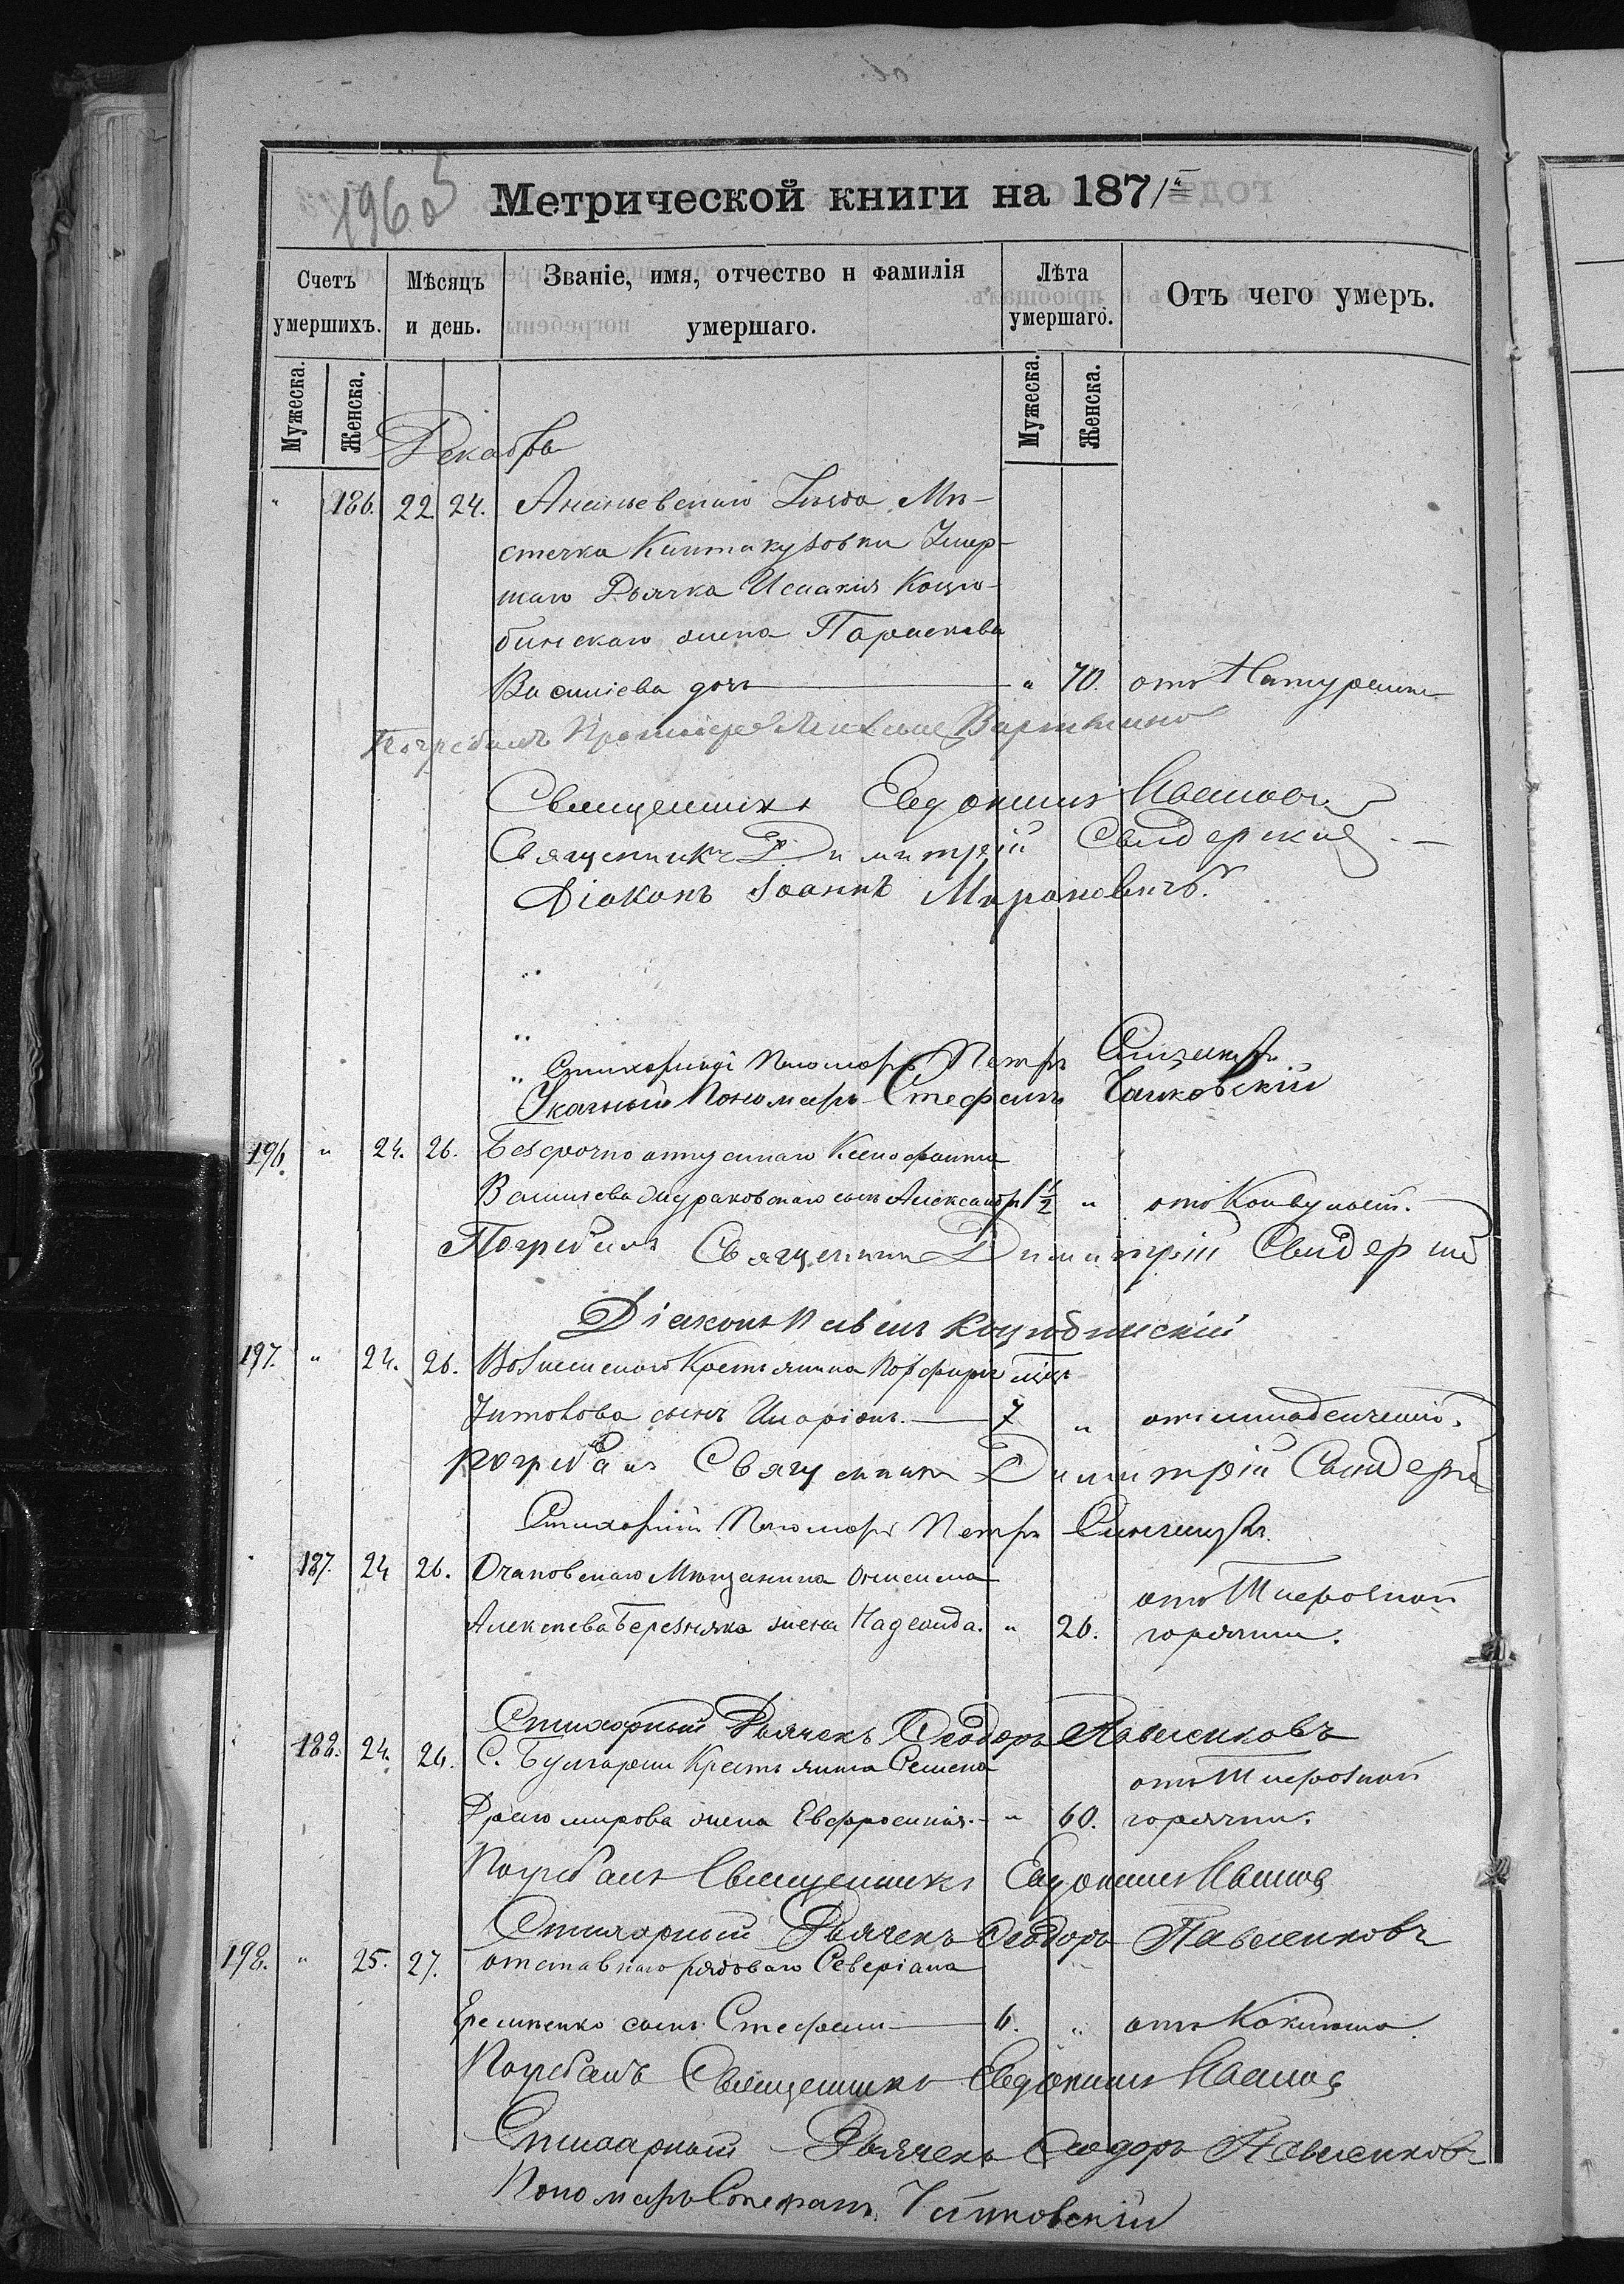 1965
Метрической книги на 1871й
Счетъ умершихъ.
Мѣсяцъ и день.
Званіе, имя, отчество и фамилія умершаго.
Лѣта умершаго.
Отъ чего умеръ.
Мужеска. Женска. Мужеска. Женска.
Декабрь
" 186. 22 24. Ананьевскаго Уѣзда Мѣ-
стечка Кантакузовки Умер-
шаго Дьячка Исаакія Коцю-
бинскаго жена Параскева
Василіева дочь " 70. отъ Натуральн
Погребалъ Протоіерей
Священникъ Евдокимъ Ивановъ
Священникъ Димитрій Свидерскій
Діаконъ Іоаннъ Марановичъ.
Стихарный Пономарь Петръ
Указный Пономарь Стефанъ Чайковскій
196. " 24. 26. Безсрочно отпускнаго Ксенофонта
Василіева сынъ Александръ 1/2 " отъ Конвульсіи.
Погребалъ Священникъ Димитрій Свидерскій
Діаконъ Павелъ Коцюбинскій
197. " 24. 26. Вознесенскаго Крестьянина Порфирія мца
Титкова сынъ Иларіонъ. 7 " отъ младенческой.
Погребалъ Священникъ Димитрій Свидерскій
Стихарный Пономарь Петръ
" 187. 24 26. Очаковскаго Мѣщанина Онисима
отъ Тифозной
Алексѣева Березняка жена Надежда. " 26. горячки.
Стихарный Дьячекъ Ѳеодоръ Павленковъ
" 188. 24. 26. С. Булгарки Крестьянина Семена
отъ Тифозной
Драгомирова жена Евфросинія. " 60. горячки.
Погребалъ Священникъ Евдокимъ Ивановъ
Стихарный Дьячекъ Ѳеодоръ Павленковъ
198. " 25. 27. отставнаго рядоваго Северіана
Еременко сынъ Стефанъ 6. " отъ Коклюша.
Погребалъ Священникъ Евдокимъ Ивановъ
Стихарный Дьячекъ Ѳеодоръ Павленковъ
Пономарь Стефанъ Чайковскій